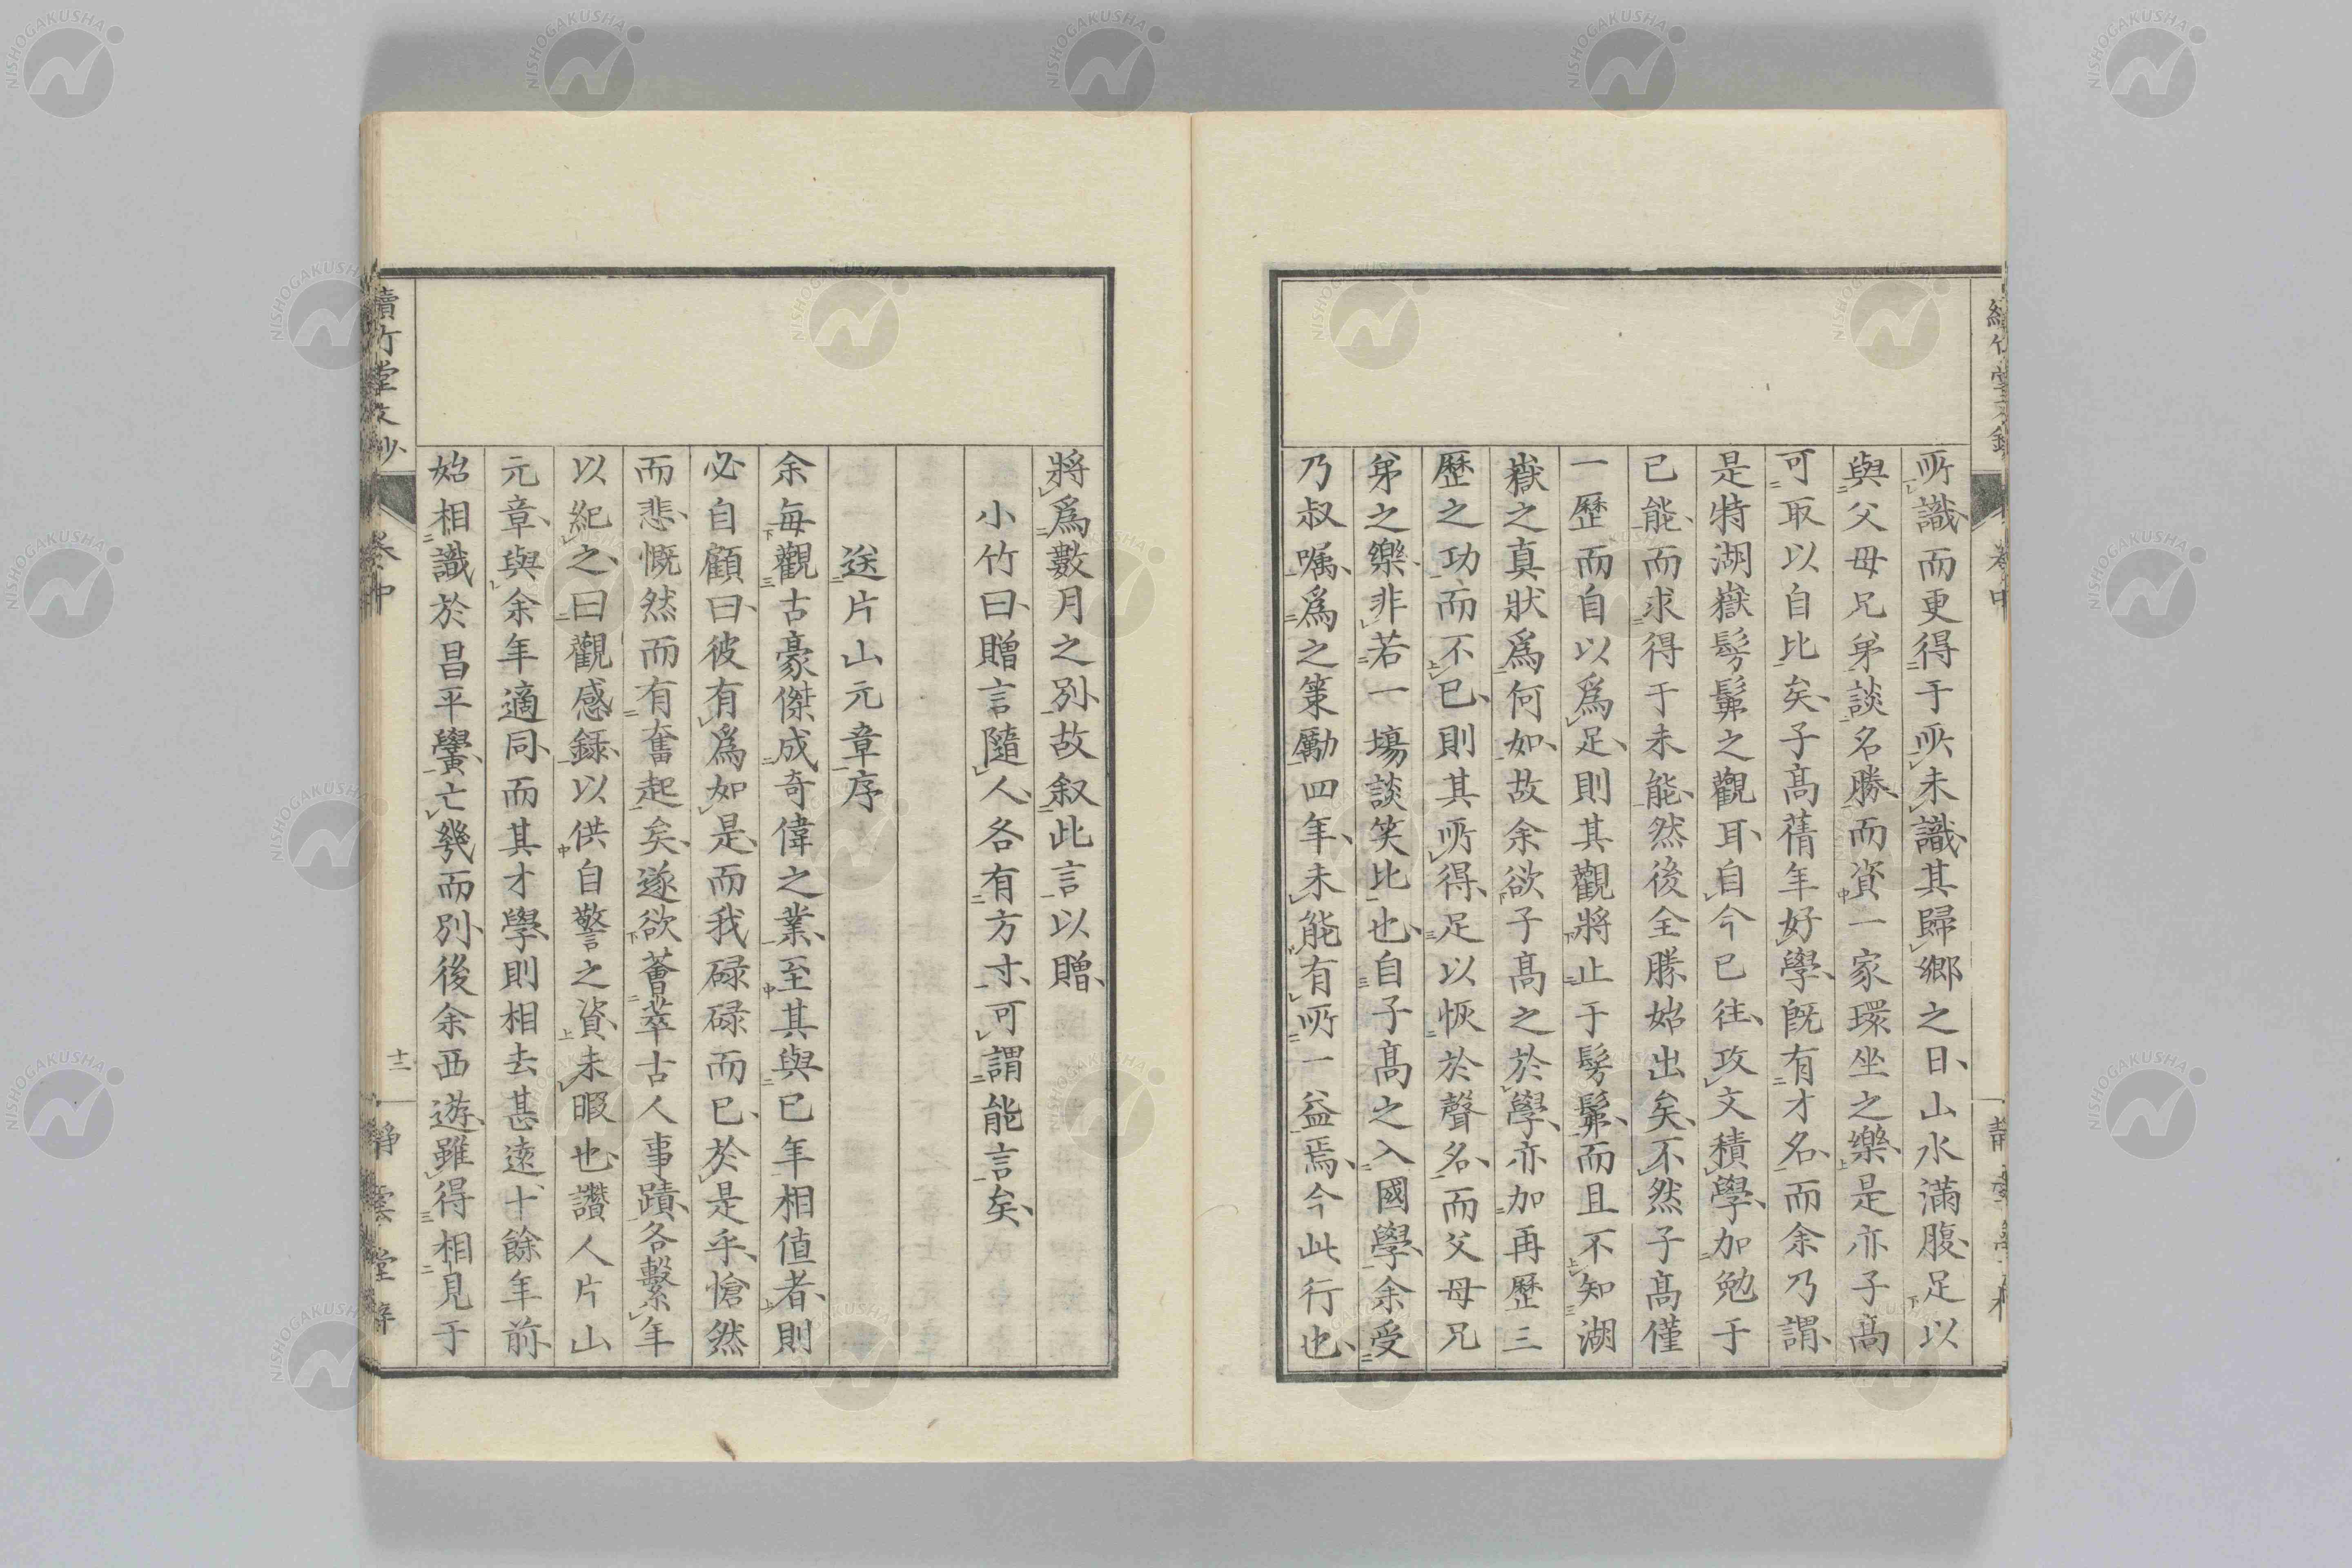 所識、而更得于所未識、其歸鄉之日、山水滿腹、足以
與父母兄弟談名勝、而資一家環坐之樂、是亦子高
可取以自比矣、子高蒨年好學、既有才名、而余乃謂、
是特湖嶽髣髴之觀耳、自今已往、攻文積學、加勉于
已能、而求得于未能、然後全勝始出矣、不然子高僅
一歷而自以爲足、則其觀將止于髣髴、而且不知湖
嶽之真狀爲何如、故余欲子高之於學、亦加再歷三
歷之功、而不已、則其所得、足以恢於聲名、而父母兄
弟之樂、非若一塲談笑比也、自子高之入國學、余受
乃叔囑、爲之策勵四年、未能有所一益焉、今此行也、
將爲數月之別、故叙此言以贈、
小竹曰、贈言隨人、各有方寸、可謂能言矣、
送片山元章序
余每觀古豪傑成奇偉之業、至其與已年相值者、則
必自顧曰、彼有爲如是、而我碌碌而已、於是乎、愴然
而悲、慨然而有奮起矣、遂欲薈萃古人事蹟、各繫年
以紀之、曰觀感録、以供自警之資、未暇也、讚人片山
元章、與余年適同、而其才學、則相去甚遠、十餘年前、
始相識於昌平黌、亡幾而別、後余西遊、雖得相見于
續竹堂文抄
卷中
十二
靜雲堂梓